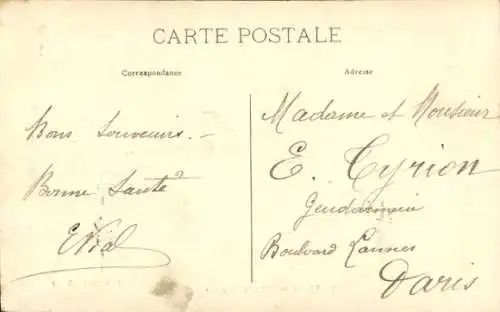 CARTE POSTALE
Correspondance
Adresse
Bons Souvenirs. –
Bonne Santé
EVial
Madame et Monsieur
E. Cyrion
Gendarmerie
Boulvard Lannes
Paris